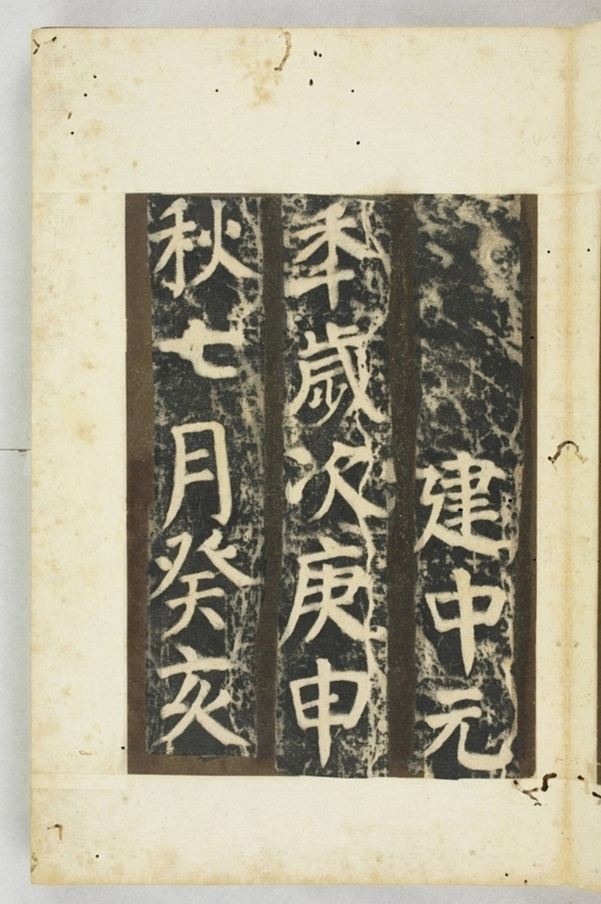 建中元
秊歲次庚申
秋七月癸亥